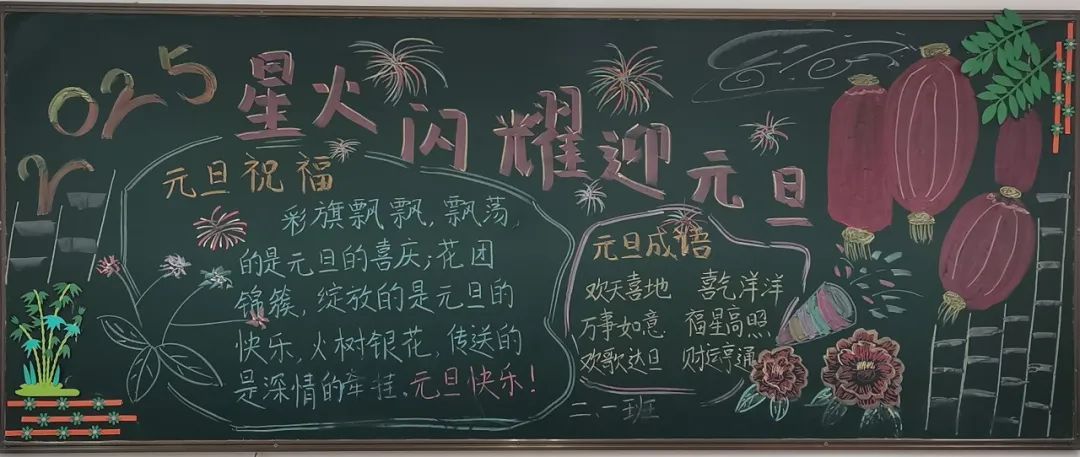 2025
星火闪耀迎元旦
元旦祝福
彩旗飘飘，飘荡，
的是元旦的喜庆；花团
锦簇，绽放的是元旦的
快乐，火树银花，传送的
是深情的牵挂，元旦快乐！
元旦成语
欢天喜地 喜气洋洋
万事如意 福星高照
欢歌达旦 财运亨通
二、一班